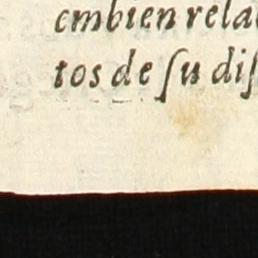 embien rela
tos de ſu diſ